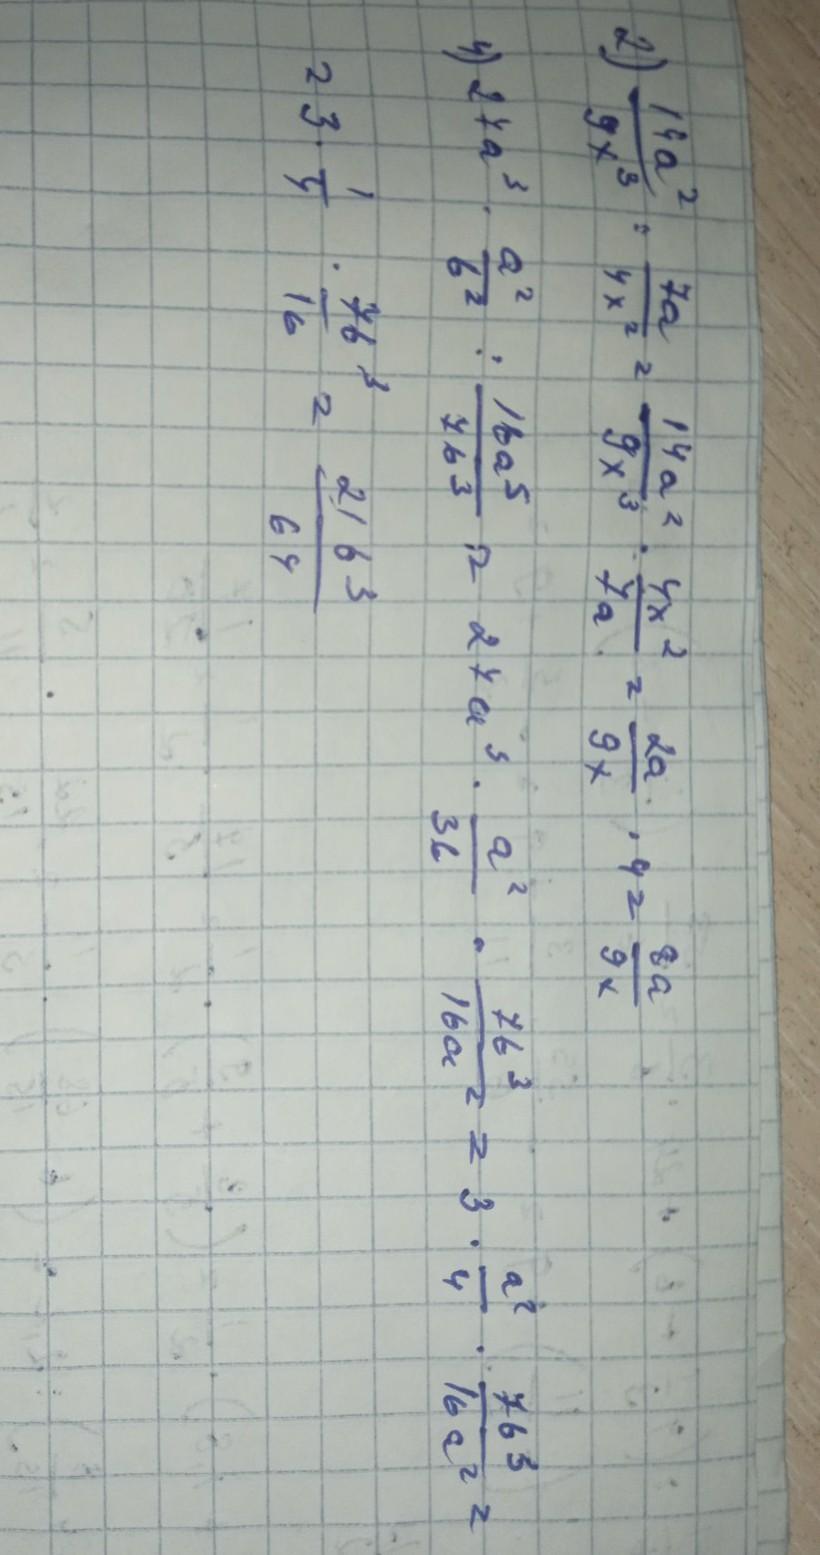 2) 14a²/9x³ : 7a/4x² = 14a²/9x³ · 4x²/7a = 2a/9x · 4 = 8a/9x
4) 27a³ · a²/6² : 16a⁵/7b³ = 27a³ · a²/36 · 7b³/16a² = 3 · a²/4 · 7b³/16a² =
= 3 · 1/4 · 7b³/16 = 21b³/64